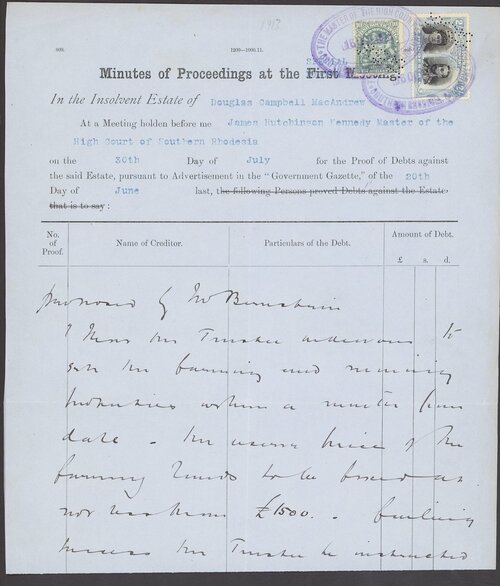 1913
808.
1200—1000.11.
SPECIAL
Minutes of Proceedings at the First Meeting.
In the Insolvent Estate of Douglas Campbell MacAndrew
At a Meeting holden before me James Hutchinson Kennedy Master of the
High Court of Southern Rhodesia
on the 30th Day of July for the Proof of Debts against
the said Estate, pursuant to Advertisement in the "Government Gazette," of the 20th
Day of June last, the following Persons proved Debts against the Estate
that is to say:
No. of Proof.
Name of Creditor.
Particulars of the Debt.
Amount of Debt.
£ s. d.
proposed by Mr Bernstein
the Trustee endeavour to
sell the farming and mining
properties within a month from
date - the reserve price of the
farming lands to be fixed at
not less than £1500. - failing
the Trustee be instructed